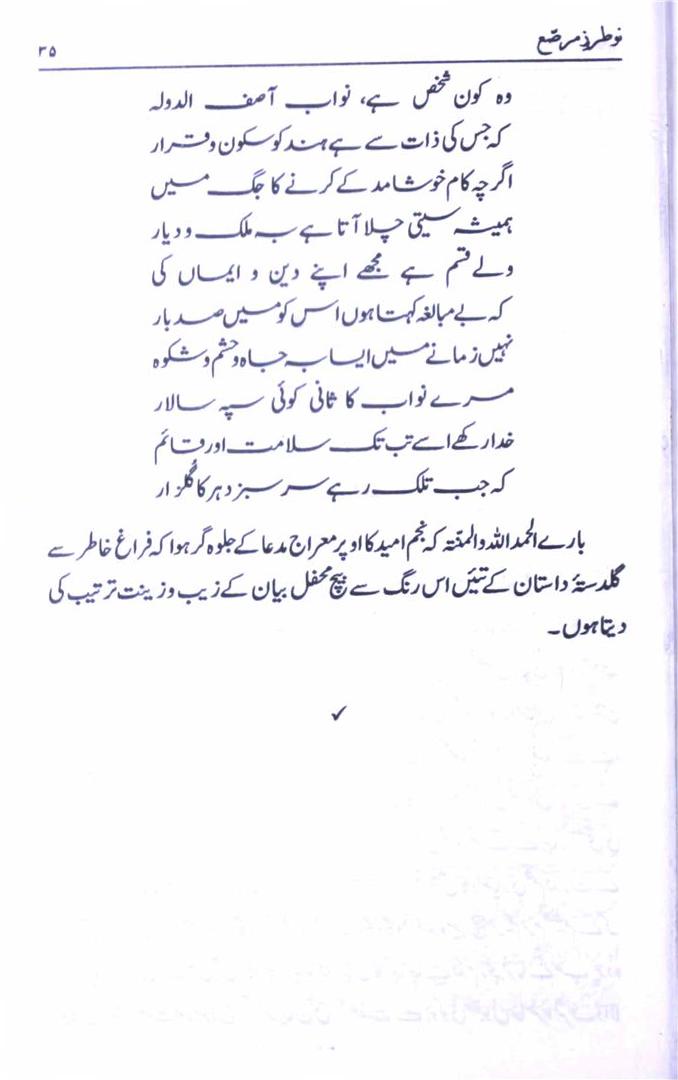 نوطرزِ مرصّع
۳۵
وہ کون شخص ہے، نواب آصف الدولہ
کہ جس کی ذات سے ہے ہند کو سکون و قرار
اگرچہ کام خوشامد کے کرنے کا جگ میں
ہمیشہ سیتی چلا آتا ہے بہ ملک و دیار
ولے قسم ہے مجھے اپنے دین و ایماں کی
کہ بے مبالغہ کہتا ہوں اس کو میں صد بار
نہیں زمانے میں ایسا بہ جاہ و حشم و شکوہ
مرے نواب کا ثانی کوئی سپہ سالار
خدا رکھے اسے تب تک سلامت اور قائم
کہ جب تلک رہے سرسبز دہر کا گُلزار
بارے الحمد اللہ والمنّتہ کہ نجم امید کا اوپر معراج مدعا کے جلوہ گر ہوا کہ فراغ خاطر سے
گلدستۂ داستان کے تئیں اس رنگ سے بیچ محفل بیان کے زیب و زینت ترتیب کی
دیتا ہوں۔
✓